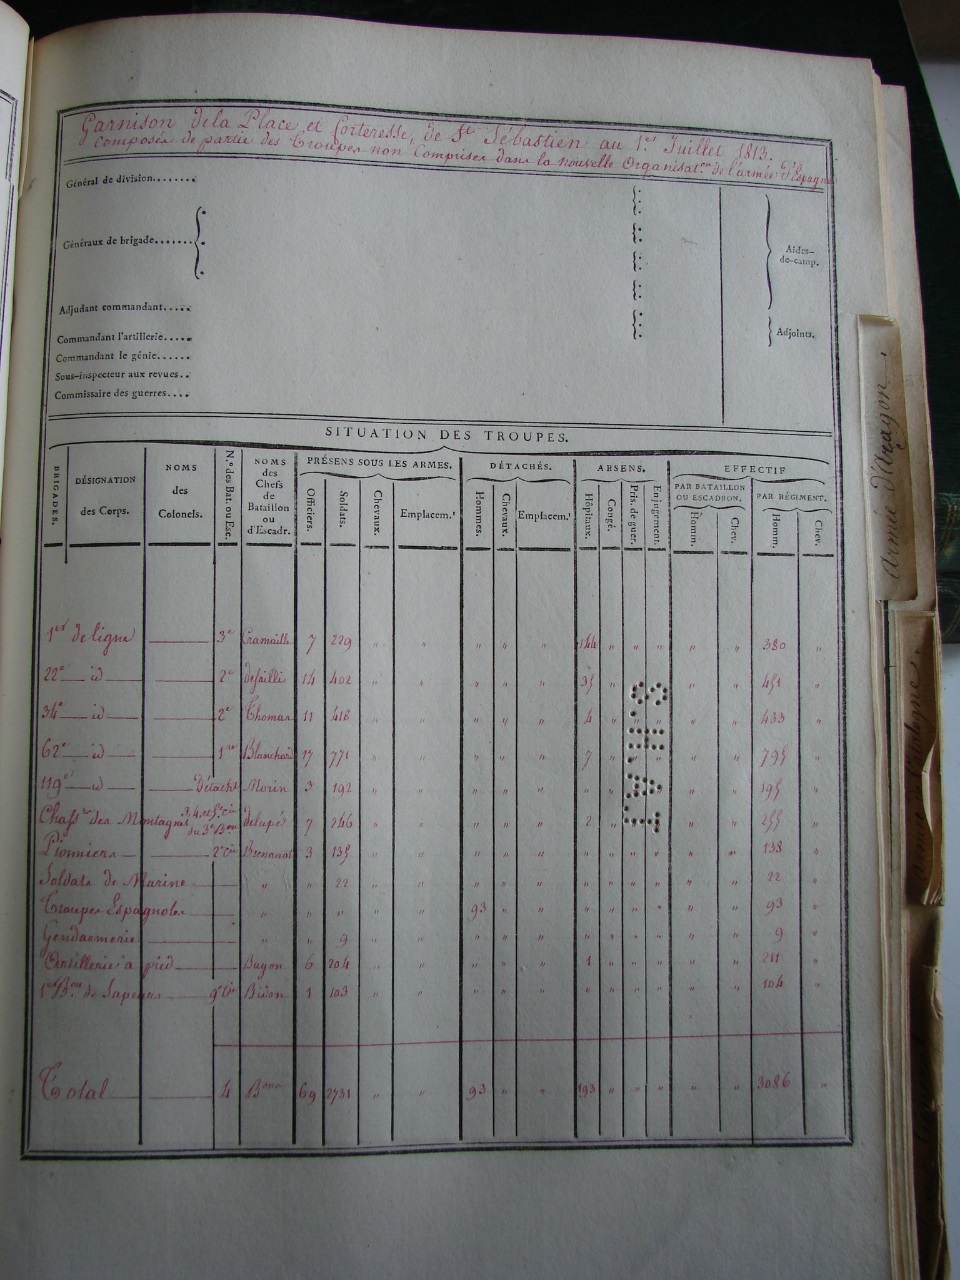 Garnison de la Place et Forteresse, de St Sébastien au 1er Juillet 1813.
Composée de partie des Troupes non Comprises dans la nouvelle Organisaton de l'armée d'Espagne
Général de division.......
Généraux de brigade.......
Aides-de-camp.
Adjudant commandant.....
Commandant l'artillerie.....
Adjoints.
Commandant le génie......
Sous-inspecteur aux revues..
Commissaire des guerres....
SITUATION DES TROUPES.
BRIGADES. DÉSIGNATION des Corps. NOMS des Colonels. N.os des Bat. ou Esc. NOMS des Chefs de Bataillon ou d'Escadr. PRÉSENS SOUS LES ARMES. DÉTACHÉS. ABSENS. EFFECTIF
PAR BATAILLON OU ESCADRON. PAR RÉGIMENT.
Officiers. Soldats. Chevaux. Emplacem.t Hommes. Chevaux. Emplacem.t Hôpitaux. Congé. Pris. de guer. Enjugement. Homm. Chev. Homm. Chev.
1er de ligne 3e 7 229 " " " " 144 " " " " " 380 "
22e id 2e 14 402 " " " " " 35 " " " " " 451 "
34e id 2e Thomas 11 418 " " " " " 4 " " " " " 433 "
62e id 1er Blanchard 17 771 " " " " " 7 " " " " " 795 "
119e id Détacht Morin 3 192 " " " " " " " " " " " 195 "
Chasrs des Montagnes 3, 4, et 5e cie du 3e Bon delupé 7 246 " " " " " 2 " " " " " 255 "
Pionniers 2e cie 3 135 " " " " " " " " " " " 138 "
Soldats de Marine " " 22 " " " " " " " " " " " 22 "
Troupes Espagnoles " " " " " 93 " " " " " " " " 93 "
Gendarmerie " " 9 " " " " " " " " " " " 9 "
Artillerie à pied 6 204 " " " " " 1 " " " " " 211 "
1er Bon de Sapeurs 9e cie Bidon 1 103 " " " " " " " " " " " 104
Total 4 Bons 69 2731 " " 93 " " 193 " " " " " 3086 "
S.H.A.T.
Armée d'Aragon.